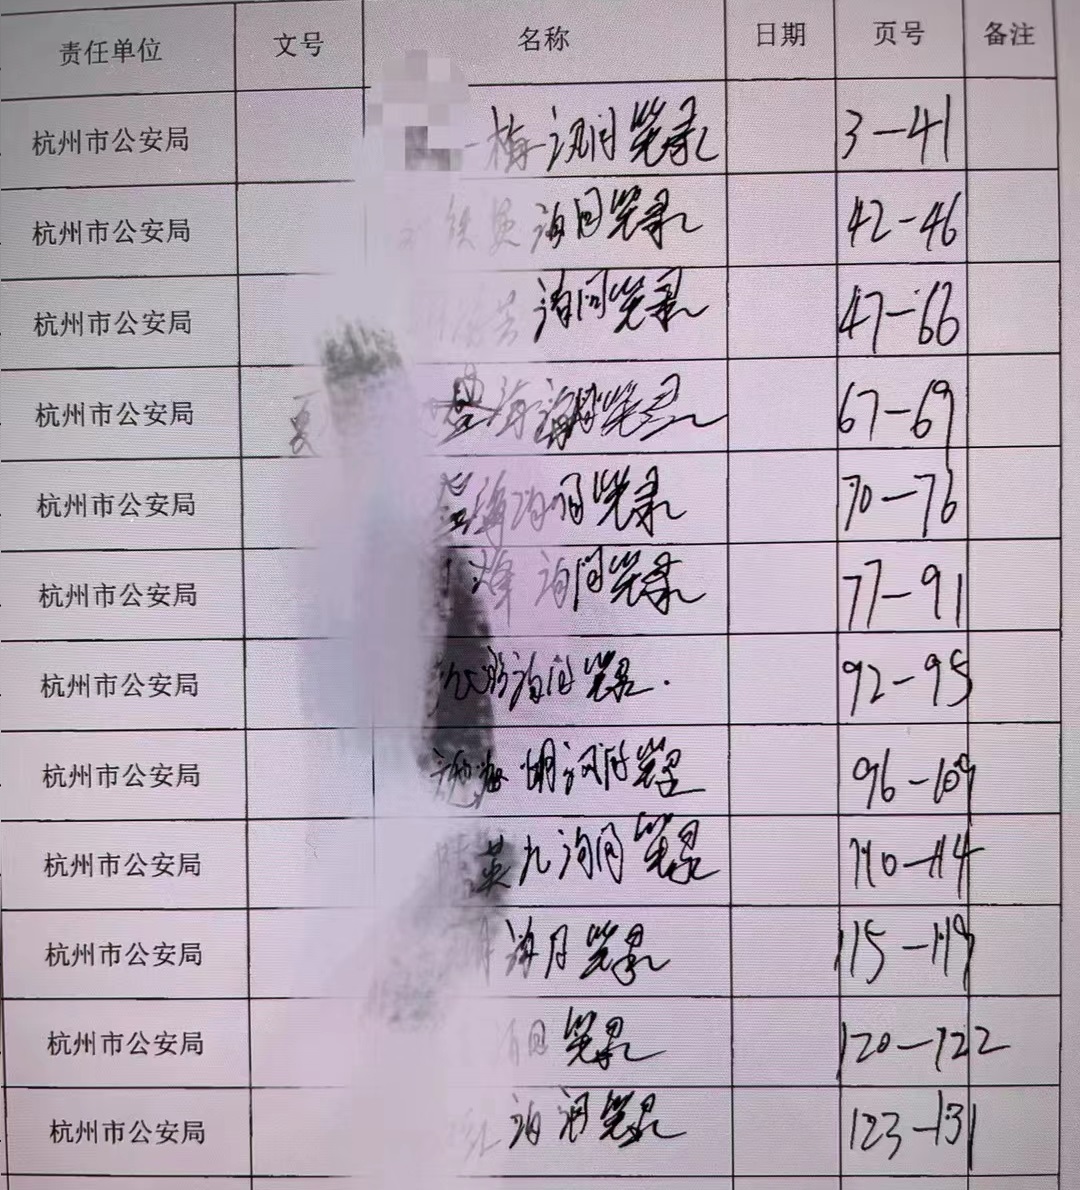 责任单位 文号 名称 日期 页号 备注
杭州市公安局 梅询问笔录 3-41
杭州市公安局 询问笔录 42-46
杭州市公安局 询问笔录 47-66
杭州市公安局 海询问笔录 67-69
杭州市公安局 海询问笔录 70-76
杭州市公安局 询问笔录 77-91
杭州市公安局 询问笔录 92-95
杭州市公安局 明询问笔录 96-109
杭州市公安局 英九询问笔录 110-114
杭州市公安局 询问笔录 115-119
杭州市公安局 询问笔录 120-122
杭州市公安局 询问笔录 123-131